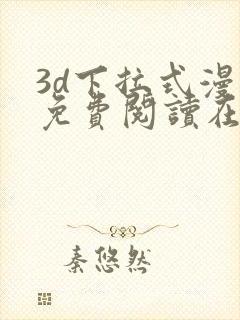 3d下拉式漫
免費閱讀在
秦悠然